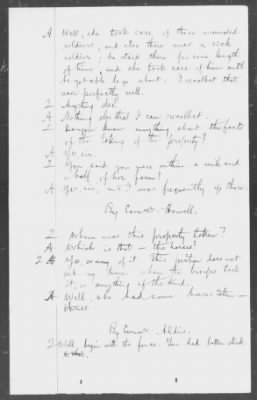 A Well, she took care of these wounded
soldiers, and also there was a sick
soldier; he staid there for some length
of time, and she took care of him until
he got able to go about. I recollect that
case perfectly well.
Q Anything else.
A Nothing else that I can recollect.
Q Do you know anything about the facts
of the taking of the property?
A Yes, sir.
Q You said you were within a mile and
a half of her farm?
A Yes, sir, and I was frequently up there
By Comr. Howell.
Q When was this property taken?
A Which is that - the horses?
Q Yes or any of it. This petition does not
at any time when the troops took
it, or anything of the kind.
A Well, she had some horses taken -
By Comr. Aldis.
Q Well, begin with the fence. You had better stick